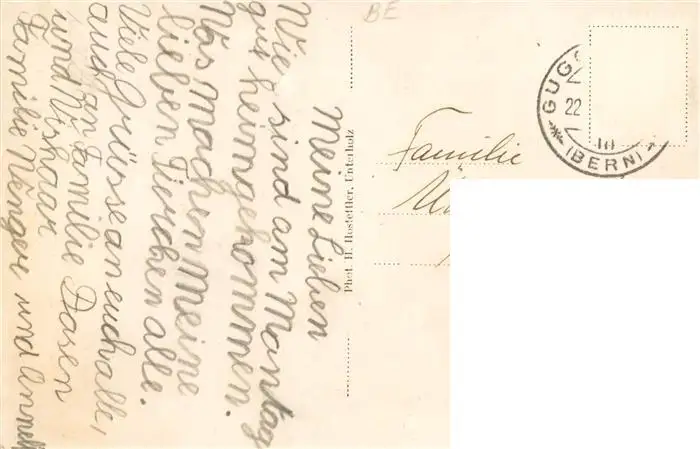 Meine Lieben
Wie sind am Mantag
gut heimgekommen.
Was Machen Meine
lieben Tierchen alle.
Viele grüsse an euch alle,
auch an Familie Dasen
und
Familie Wenger und Annel
Phot. H. Hostettler, Unterholz
BE
GUGG
22
10
(BERN)
Familie